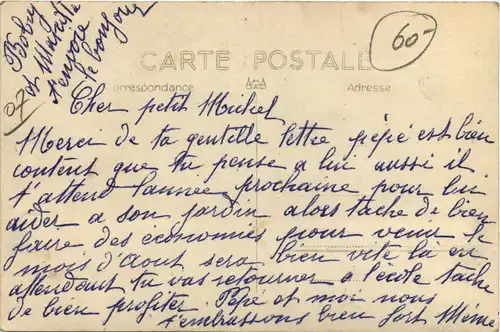 Boby
et Mafalda
t'envoie
le bonjour
07
60-
CARTE POSTALE
Correspondance
Adresse
Cher petit Michel
Merci de ta gentille lettre pépé est bien
content que tu pense a lui aussi il
t'attend l'année prochaine pour lui
aider a son jardin alors tache de bien
faire des économies pour venir le
mois d'Aout sera bien vite là en
attendant tu vas retourner a l'école tache
de bien profiter Pépé et moi nous
t'embrassons bien fort Mémé